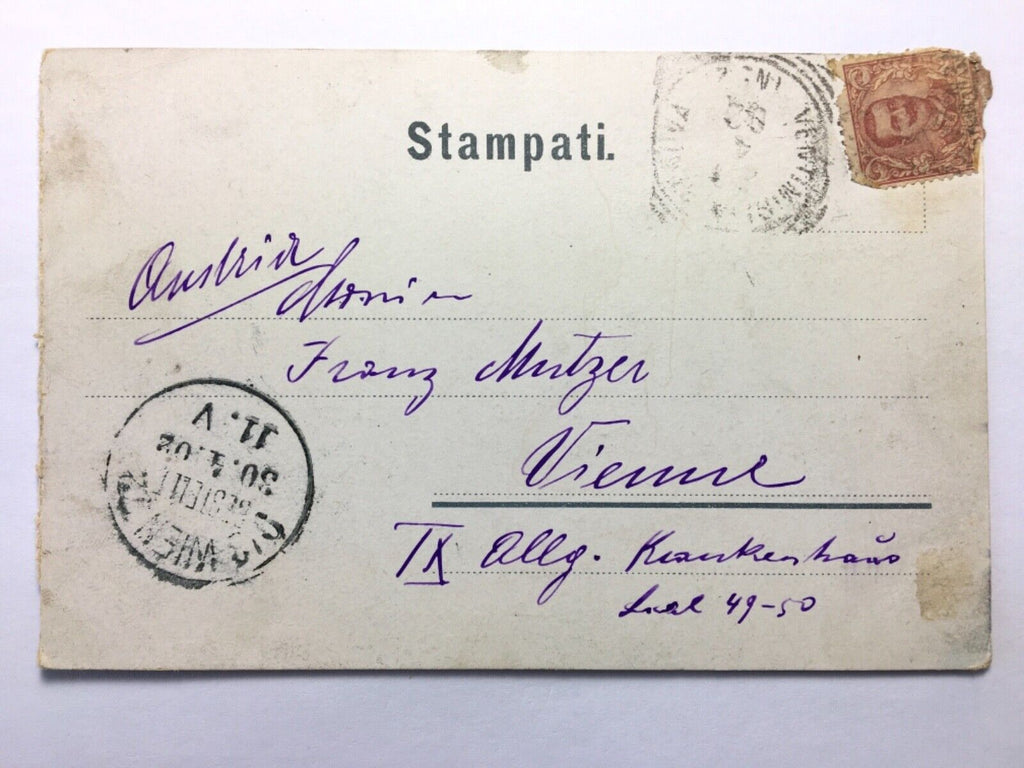 Stampati.
VENTIMIGLIA
Austria
Franz Mutzer
Vienne
IX Allg. Krankenhaus
Saal 49-50
WIEN
BESTELLT
30.4.02
11.V